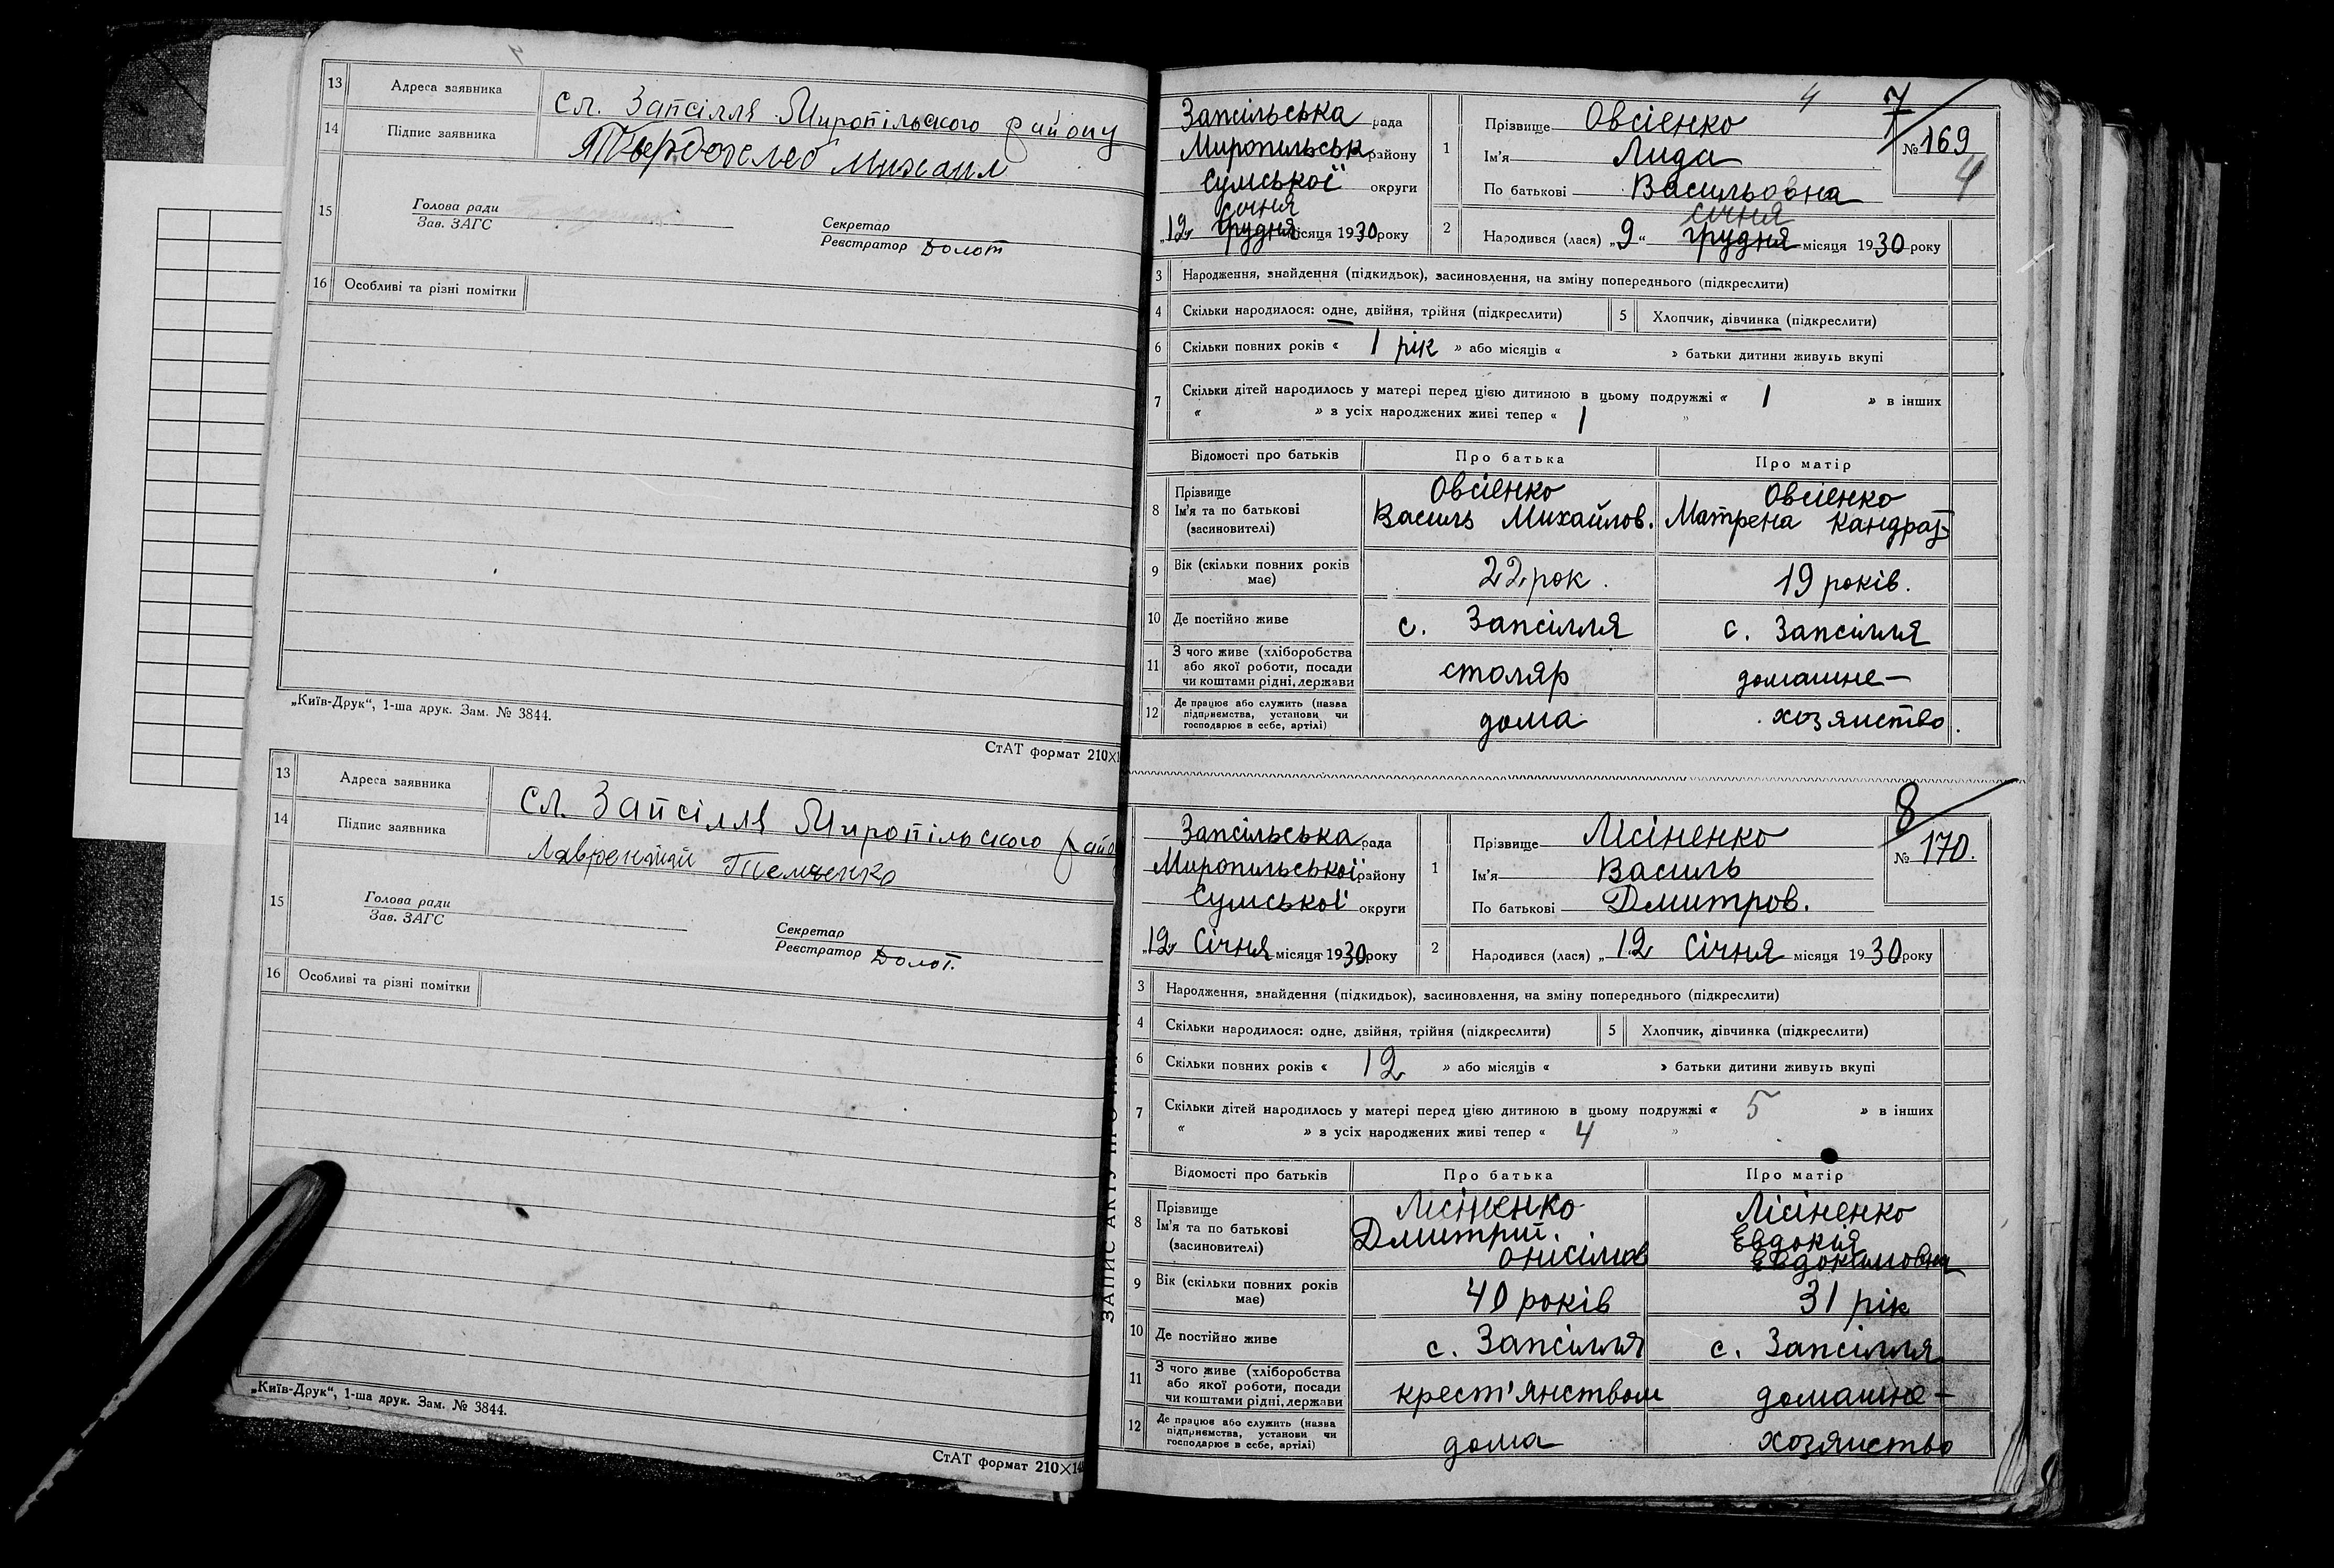 13 Адреса заявника сл. Запсілля Миропільского району
14 Підпис заявника Твердохлеб Михаил
15 Голова ради
Зав. ЗАГС
Секретар
Реєстратор Долот
16 Особливі та різні помітки
„Київ-Друк“, 1-ша друк. Зам. № 3844.
СтАТ формат 210×1
13 Адреса заявника сл. Запсілля Миропільского рай
14 Підпис заявника Лаврентий Темченко
15 Голова ради
Зав. ЗАГС
Секретар
Реєстратор Долот.
16 Особливі та різні помітки
„Київ-Друк“, 1-ша друк. Зам. № 3844.
СтАТ формат 210×14
4 7
Запсільська рада
Миропильськ району
Сумської округи
січня
„12 грудня місяця 1930 року
1 Прізвище Овсієнко
Ім'я Лида
По батькові Васильовна
№ 169
4
січня
2 Народився (лася) „9“ грудня місяця 1930 року
3 Народження, знайдення (підкидьок), засиновлення, на зміну попереднього (підкреслити)
4 Скільки народилося: одне, двійня, трійня (підкреслити) 5 Хлопчик, дівчинка (підкреслити)
6 Скільки повних років « 1 рік » або місяців « » батьки дитини живуть вкупі
7 Скільки дітей народилось у матері перед цією дитиною в цьому подружжі « 1 » в інших
« » з усіх народжених живі тепер « 1 »
Відомості про батьків Про батька Про матір
8 Прізвище
Ім'я та по батькові
(засиновителі)
Овсієнко
Василь Михайлов.
Овсієнко
Матрена Кандрат
9 Вік (скільки повних років має) 22 рок. 19 років.
10 Де постійно живе с. Запсілля с. Запсілля
11 З чого живе (хліборобства
або якої роботи, посади
чи коштами рідні, держави
столяр домашне-
12 Де працює або служить (назва
підприємства, установи чи
господарює в себе, артілі)
дома хозяиство.
8
Запсільська рада
Миропильської району
Сумської округи
„12 Січня місяця 1930 року
1 Прізвище Лісіненко
Ім'я Василь
По батькові Дмитров.
№ 170.
2 Народився (лася) „12 Січня місяця 1930 року
3 Народження, знайдення (підкидьок), засиновлення, на зміну попереднього (підкреслити)
4 Скільки народилося: одне, двійня, трійня (підкреслити) 5 Хлопчик, дівчинка (підкреслити)
6 Скільки повних років « 12 » або місяців « » батьки дитини живуть вкупі
7 Скільки дітей народилось у матері перед цією дитиною в цьому подружжі « 5 » в інших
« » з усіх народжених живі тепер « 4 »
Відомості про батьків Про батька Про матір
8 Прізвище
Ім'я та по батькові
(засиновителі)
Лісіненко
Дмитрий.
Онисімов
Лісіненко
Евдокія
Евдокимовна
9 Вік (скільки повних років має) 40 років 31 рік
10 Де постійно живе с. Запсілля с. Запсілля
11 З чого живе (хліборобства
або якої роботи, посади
чи коштами рідні, держави
крест'янством домашне-
12 Де працює або служить (назва
підприємства, установи чи
господарює в себе, артілі)
дома хозяиство